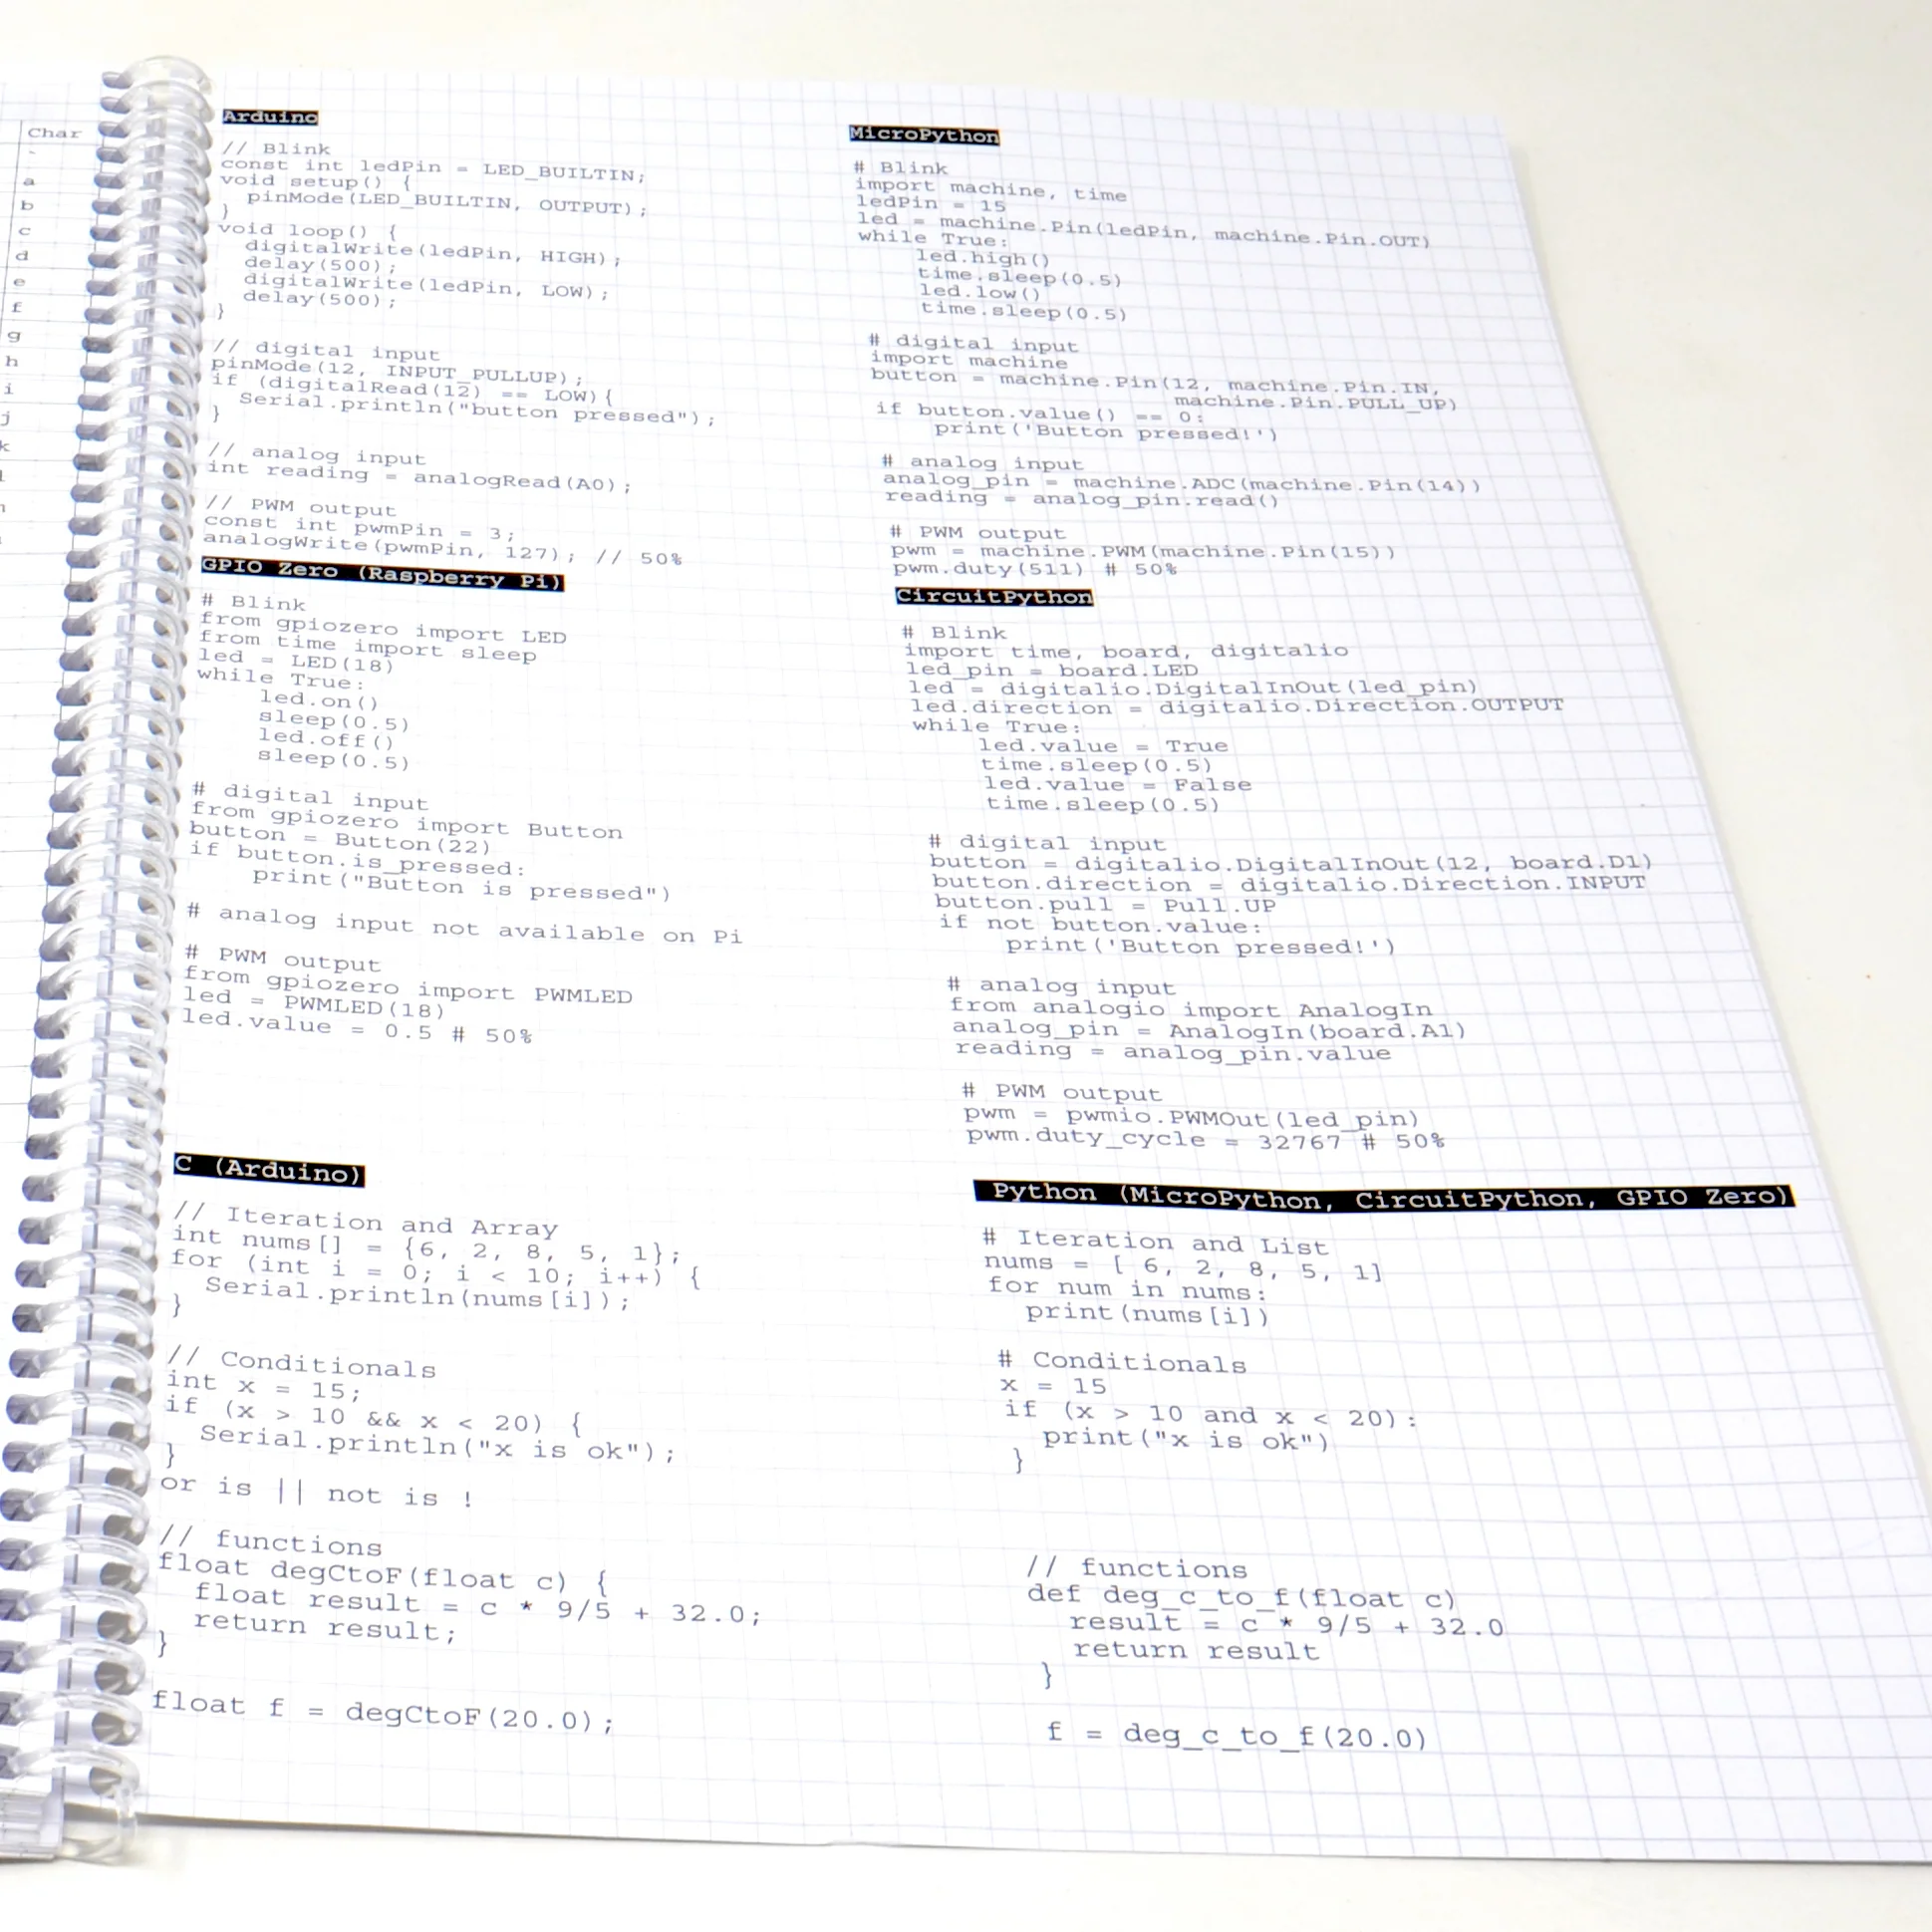 Char
a
b
c
d
e
f
g
h
i
j
k
Arduino
// Blink
const int ledPin = LED_BUILTIN;
void setup() {
  pinMode(LED_BUILTIN, OUTPUT);
}
void loop() {
  digitalWrite(ledPin, HIGH);
  delay(500);
  digitalWrite(ledPin, LOW);
  delay(500);
}
// digital input
pinMode(12, INPUT_PULLUP);
if (digitalRead(12) == LOW){
  Serial.println("button pressed");
}
// analog input
int reading = analogRead(A0);
// PWM output
const int pwmPin = 3;
analogWrite(pwmPin, 127); // 50%
GPIO Zero (Raspberry Pi)
# Blink
from gpiozero import LED
from time import sleep
led = LED(18)
while True:
    led.on()
    sleep(0.5)
    led.off()
    sleep(0.5)
# digital input
from gpiozero import Button
button = Button(22)
if button.is_pressed:
    print("Button is pressed")
# analog input not available on Pi
# PWM output
from gpiozero import PWMLED
led = PWMLED(18)
led.value = 0.5 # 50%
C (Arduino)
// Iteration and Array
int nums[] = {6, 2, 8, 5, 1};
for (int i = 0; i < 10; i++) {
  Serial.println(nums[i]);
}
// Conditionals
int x = 15;
if (x > 10 && x < 20) {
  Serial.println("x is ok");
}
or is || not is !
// functions
float degCtoF(float c) {
  float result = c * 9/5 + 32.0;
  return result;
}
float f = degCtoF(20.0);
MicroPython
# Blink
import machine, time
ledPin = 15
led = machine.Pin(ledPin, machine.Pin.OUT)
while True:
    led.high()
    time.sleep(0.5)
    led.low()
    time.sleep(0.5)
# digital input
import machine
button = machine.Pin(12, machine.Pin.IN,
                    machine.Pin.PULL_UP)
if button.value() == 0:
    print('Button pressed!')
# analog input
analog_pin = machine.ADC(machine.Pin(14))
reading = analog_pin.read()
# PWM output
pwm = machine.PWM(machine.Pin(15))
pwm.duty(511) # 50%
CircuitPython
# Blink
import time, board, digitalio
led_pin = board.LED
led = digitalio.DigitalInOut(led_pin)
led.direction = digitalio.Direction.OUTPUT
while True:
    led.value = True
    time.sleep(0.5)
    led.value = False
    time.sleep(0.5)
# digital input
button = digitalio.DigitalInOut(12, board.D1)
button.direction = digitalio.Direction.INPUT
button.pull = Pull.UP
if not button.value:
    print('Button pressed!')
# analog input
from analogio import AnalogIn
analog_pin = AnalogIn(board.A1)
reading = analog_pin.value
# PWM output
pwm = pwmio.PWMOut(led_pin)
pwm.duty_cycle = 32767 # 50%
Python (MicroPython, CircuitPython, GPIO Zero)
# Iteration and List
nums = [ 6, 2, 8, 5, 1]
for num in nums:
  print(nums[i])
# Conditionals
x = 15
if (x > 10 and x < 20):
  print("x is ok")
}
// functions
def deg_c_to_f(float c)
  result = c * 9/5 + 32.0
  return result
}
f = deg_c_to_f(20.0)